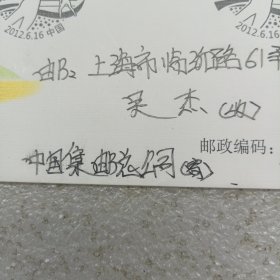 2012.6.16 中国
2012.6.16 中国
邮: 上海市临汾路61弄
吴杰(收)
邮政编码:
中国集邮总公司(寄)